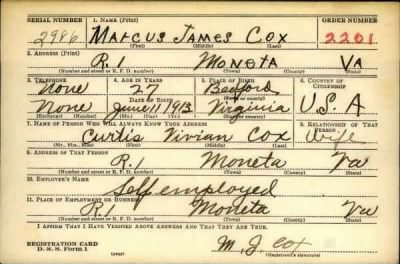 SERIAL NUMBER 1. NAME (Print) ORDER NUMBER
2986 Marcus James Cox 2201
(First) (Middle) (Last)
2. ADDRESS (Print)
R.1 Moneta Va
(Number and street or R. F. D. number) (Town) (County) (State)
3. TELEPHONE 4. AGE IN YEARS 5. PLACE OF BIRTH 6. COUNTRY OF CITIZENSHIP
None 27 Bedford
DATE OF BIRTH (Town or county)
None June 11 1913 Virginia U.S.A
(Exchange) (Number) (Mo.) (Day) (Yr.) (State or country)
7. NAME OF PERSON WHO WILL ALWAYS KNOW YOUR ADDRESS 8. RELATIONSHIP OF THAT PERSON
Curtis Vivian Cox Wife
(Mr., Mrs., Miss) (First) (Middle) (Last)
9. ADDRESS OF THAT PERSON
R.1 Moneta Va
(Number and street or R. F. D. number) (Town) (County) (State)
10. EMPLOYER'S NAME
Self employed
11. PLACE OF EMPLOYMENT OR BUSINESS
R.1 Moneta Va
(Number and street or R. F. D. number) (Town) (County) (State)
I AFFIRM THAT I HAVE VERIFIED ABOVE ANSWERS AND THAT THEY ARE TRUE.
REGISTRATION CARD
D. S. S. Form 1 M. J. Cox
(Registrant's signature)